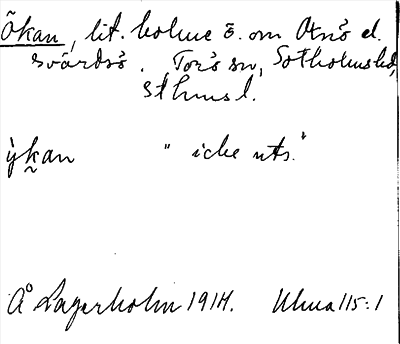 Ökan, lit. holme ö. om Otnö el.
Svärdsö. Torö sn, Sotholms hd,
Sthms l.
ỳk̰an " icke uts."
Å Lagerholm 1914. Uhua 115:1